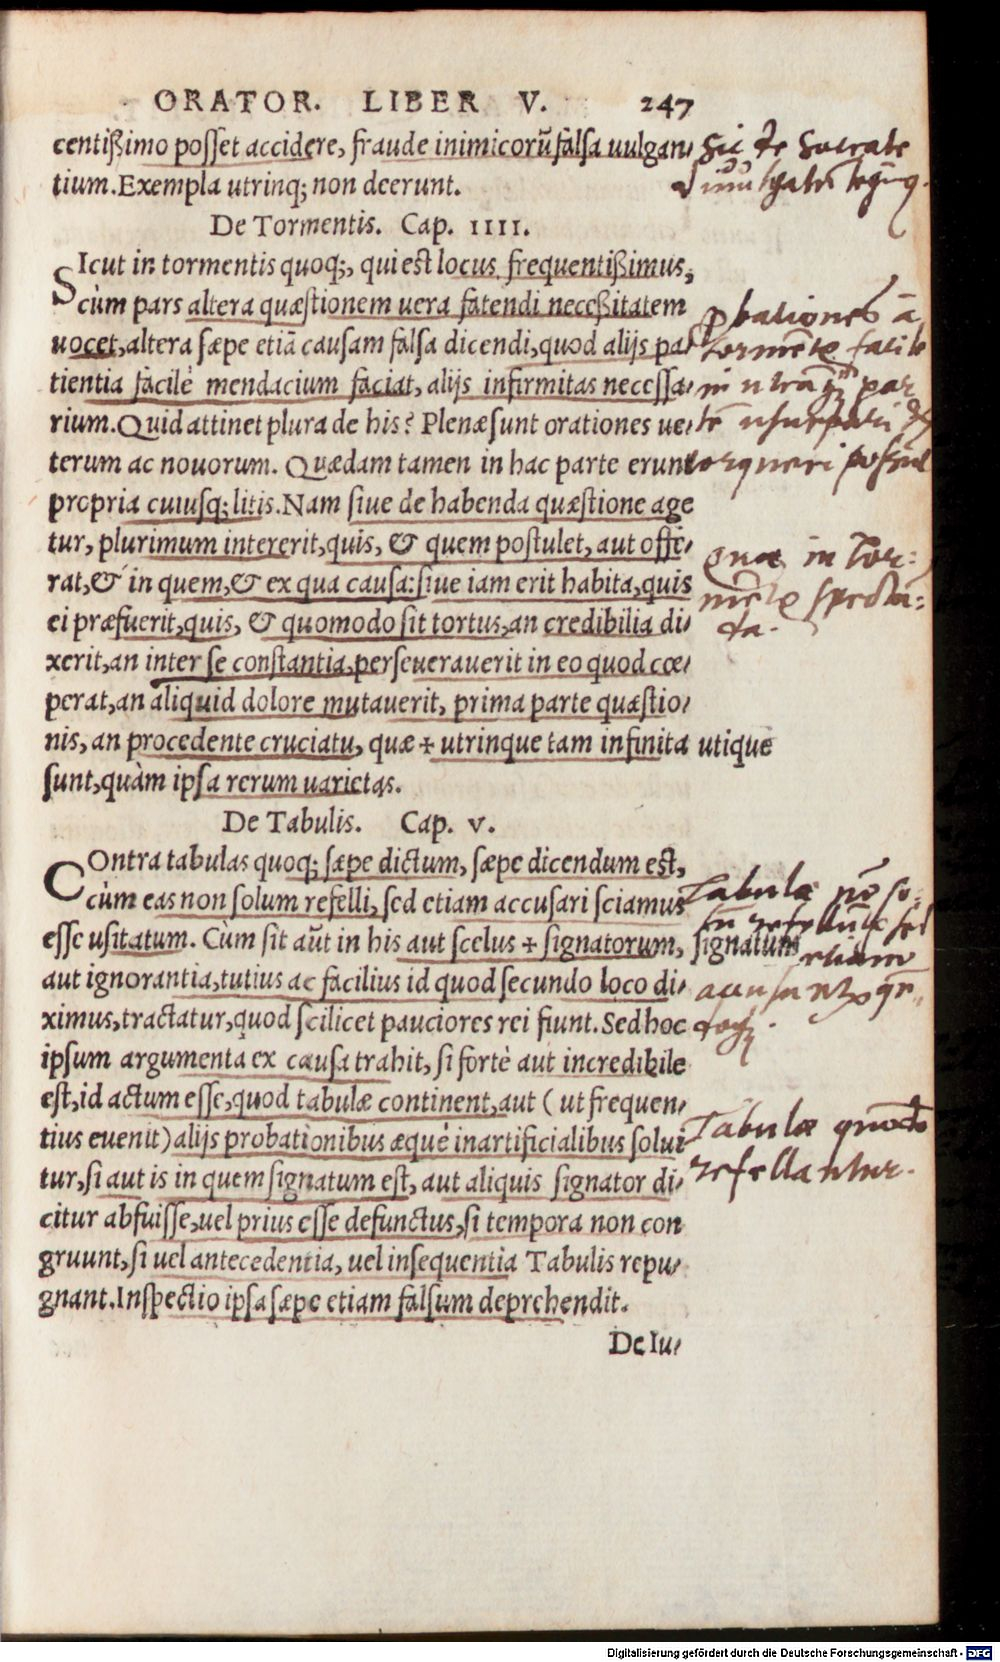 ORATOR. LIBER V. 247
centißimo posset accidere, fraude inimicorũ falsa uulgan⸗
tium. Exempla utrinq; non deerunt.
Sic de Socrate
De Tormentis. Cap. IIII.
SIcut in tormentis quoq;, qui est locus frequentißimus,
cùm pars altera quæstionem uera fatendi neceßitatem
uocet, altera sæpe etiã causam falsa dicendi, quod alijs pa⸗
tientia facilè mendacium faciat, alijs infirmitas necessa⸗
rium. Quid attinet plura de his? Plenæ sunt orationes ue⸗
terum ac nouorum. Quædam tamen in hac parte erunt
propria cuiusq; litis. Nam siue de habenda quæstione age
tur, plurimum intererit, quis, & quem postulet, aut offe⸗
rat, & in quem, & ex qua causa: siue iam erit habita, quis
ei præfuerit, quis, & quomodo sit tortus, an credibilia di⸗
xerit, an inter se constantia, perseuerauerit in eo quod cœ⸗
perat, an aliquid dolore mutauerit, prima parte quæstio⸗
nis, an procedente cruciatu, quæ + utrinque tam infinita utique
sunt, quàm ipsa rerum uarietas.
ꝓbationes à
tormẽtis facile
in utrãq; par
tẽ usurpari &
torqueri possũt
Quæ in tor:
mẽtis spectã:
da.
De Tabulis. Cap. V.
COntra tabulas quoq; sæpe dictum, sæpe dicendum est,
cùm eas non solum refelli, sed etiam accusari sciamus
esse usitatum. Cùm sit aũt in his aut scelus + signatorum, signatum
aut ignorantia, tutius ac facilius id quod secundo loco di⸗
ximus, tractatur, quod scilicet pauciores rei fiunt. Sed hoc
ipsum argumenta ex causa trahit, si fortè aut incredibile
est, id actum esse, quod tabulæ continent, aut ( ut frequen⸗
tius euenit) alijs probationibus æquè inartificialibus solui
tur, si aut is in quem signatum est, aut aliquis signator di⸗
citur abfuisse, uel prius esse defunctus, si tempora non con
gruunt, si uel antecedentia, uel insequentia Tabulis repu⸗
gnant. Inspectio ipsa sæpe etiam falsum deprehendit.
Tabulæ nõ so:
etiam
Tabulæ quõdo
refellantur.
De Iu⸗
Digitalisierung gefördert durch die Deutsche Forschungsgemeinschaft - DFG